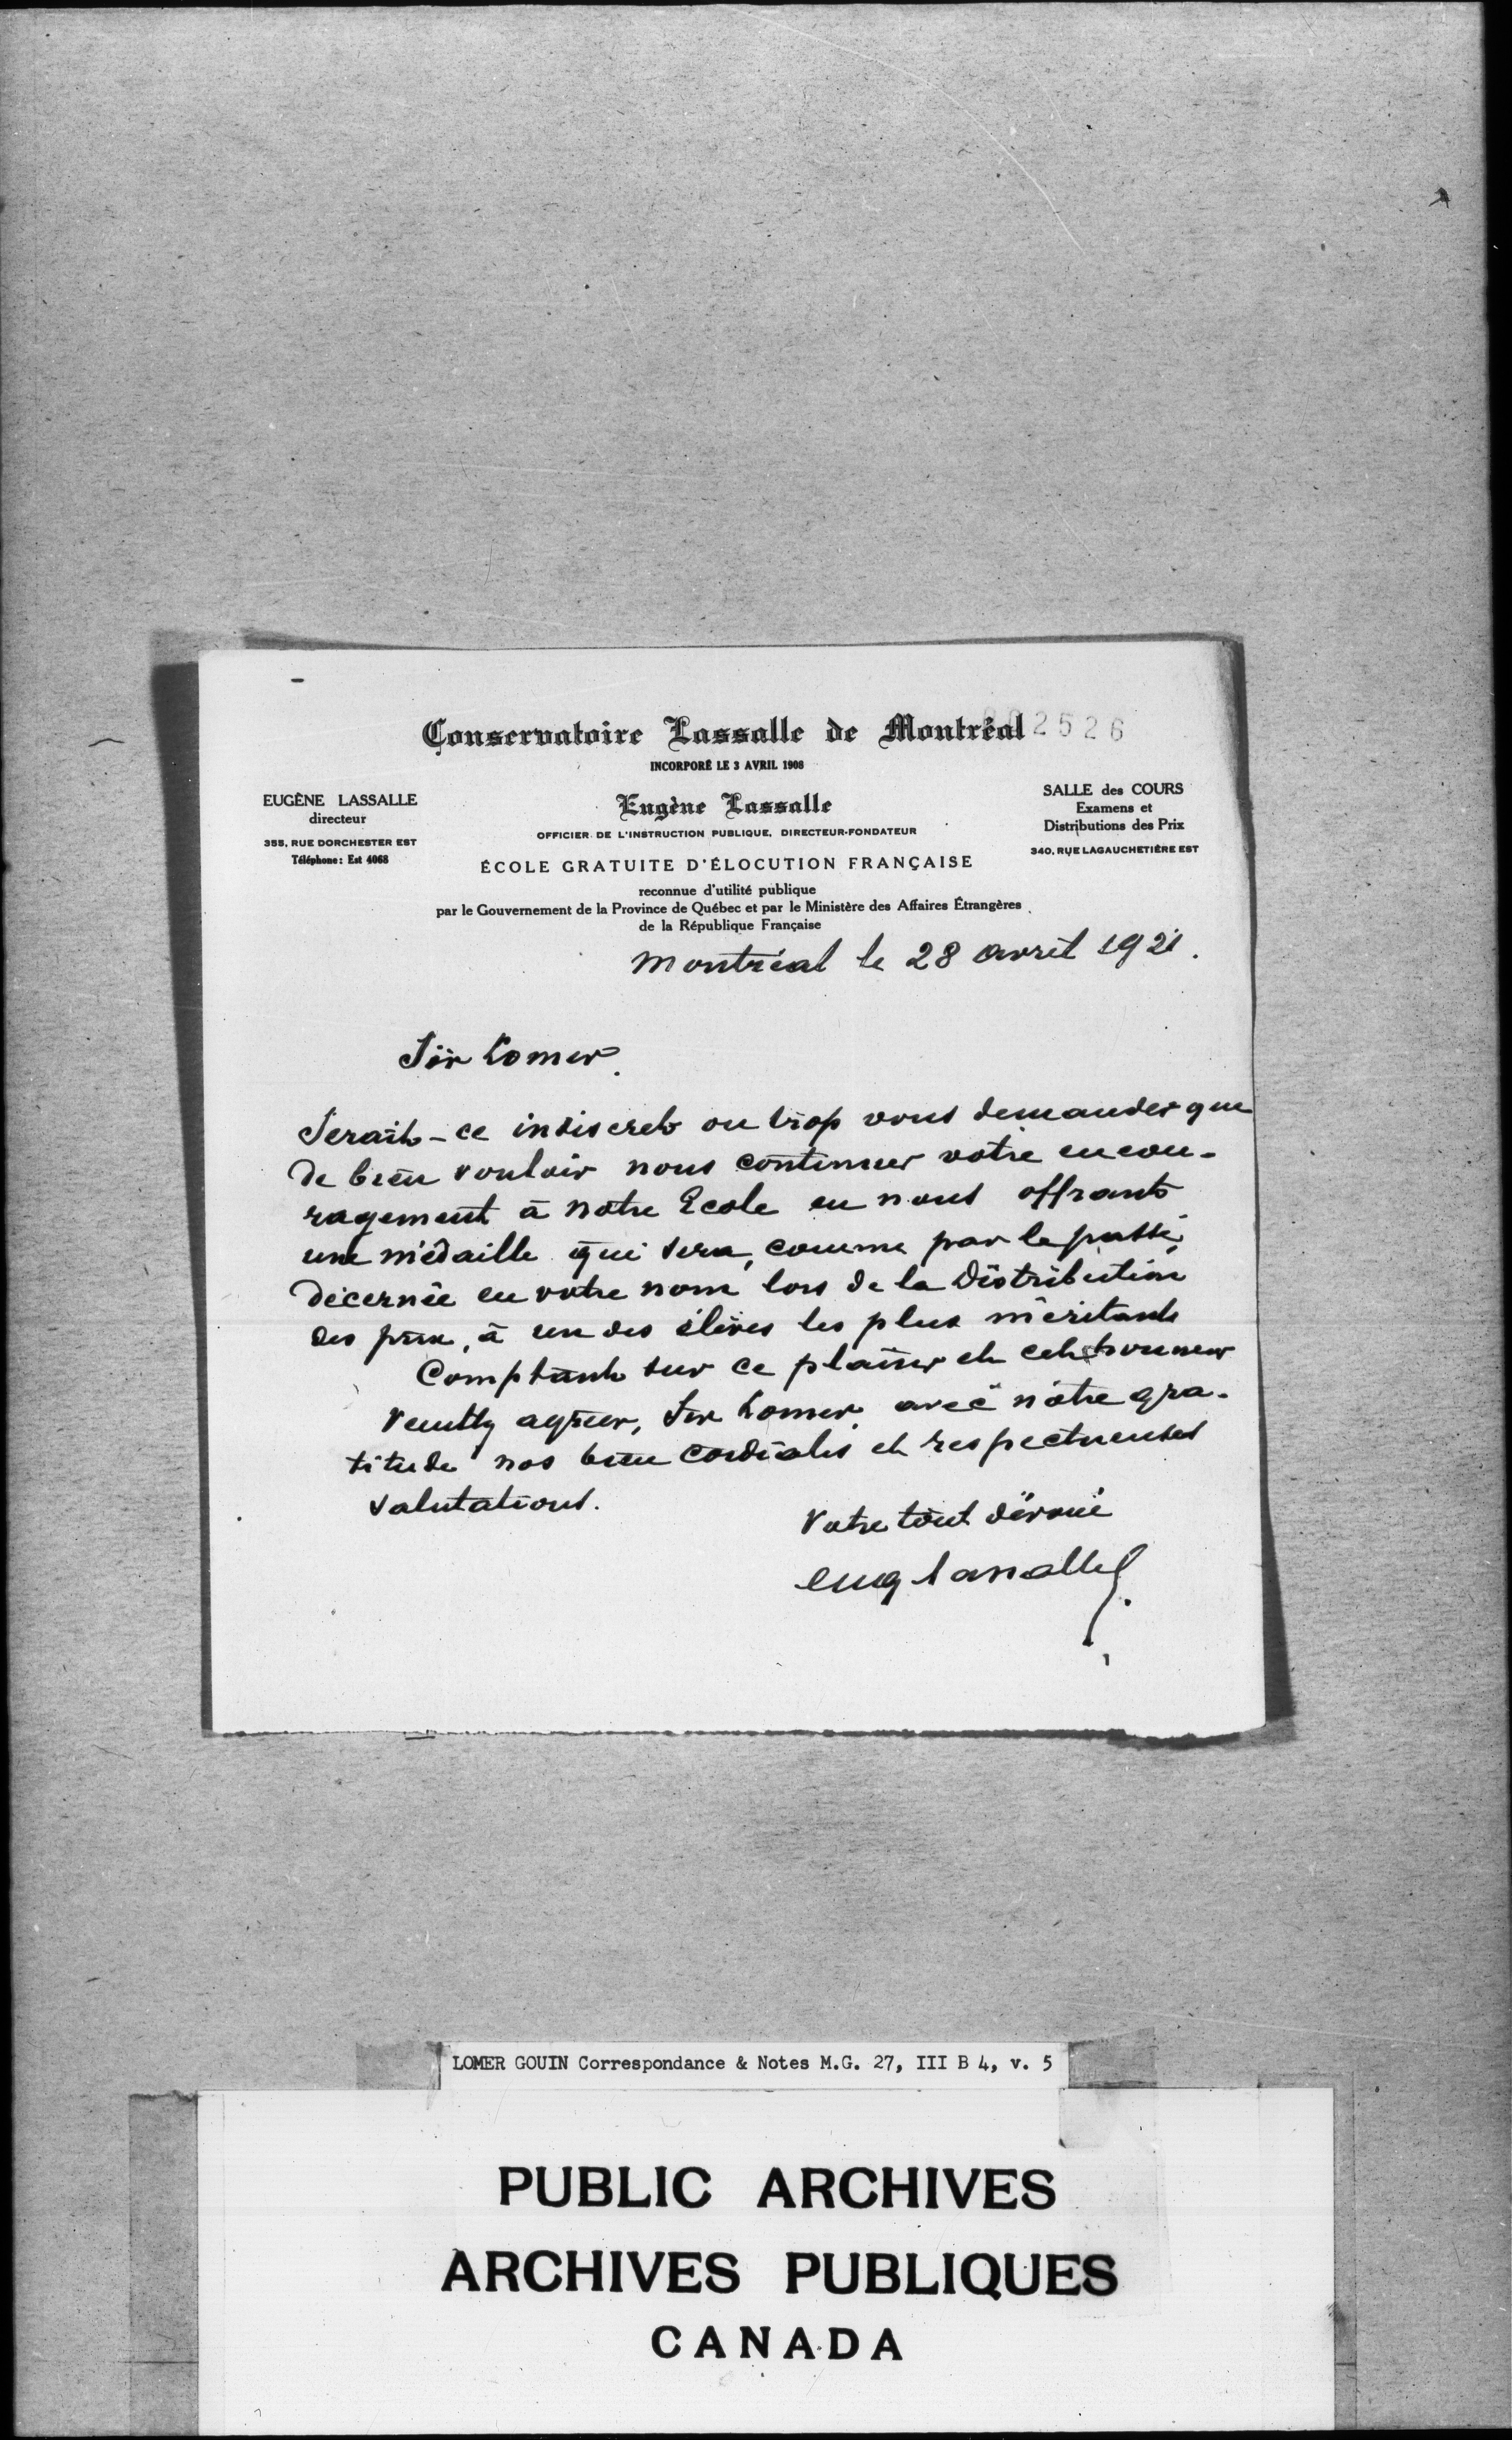 Conservatoire Lassalle de Montréal
2526
INCORPORÉ LE 3 AVRIL 1908
EUGÈNE LASSALLE
directeur
355, RUE DORCHESTER EST
Téléphone: Est 4068
Eugène Lassalle
OFFICIER DE L'INSTRUCTION PUBLIQUE, DIRECTEUR-FONDATEUR
ÉCOLE GRATUITE D'ÉLOCUTION FRANÇAISE
reconnue d'utilité publique
par le Gouvernement de la Province de Québec et par le Ministère des Affaires Étrangères
de la République Française
SALLE des COURS
Examens et
Distributions des Prix
340, RUE LAGAUCHETIÈRE EST
Montréal le 28 avril 1921.
Sir Lomer.
Serait-ce indiscret ou trop vous demander que
de bien vouloir nous continuer votre encou-
ragement à notre Ecole en nous offrant
une médaille qui sera, comme par le passé,
décernée en votre nom lors de la Distribution
des prix, à un des élèves les plus méritants
Comptant sur ce plaisir et cet honneur
veuillez agréer, Sir Lomer, avec notre gra-
titude nos bien cordiales et respectueuses
salutations.
Votre tout dévoué
Eug Lassalle
LOMER GOUIN Correspondance & Notes M.G. 27, III B 4, v. 5
PUBLIC ARCHIVES
ARCHIVES PUBLIQUES
CANADA